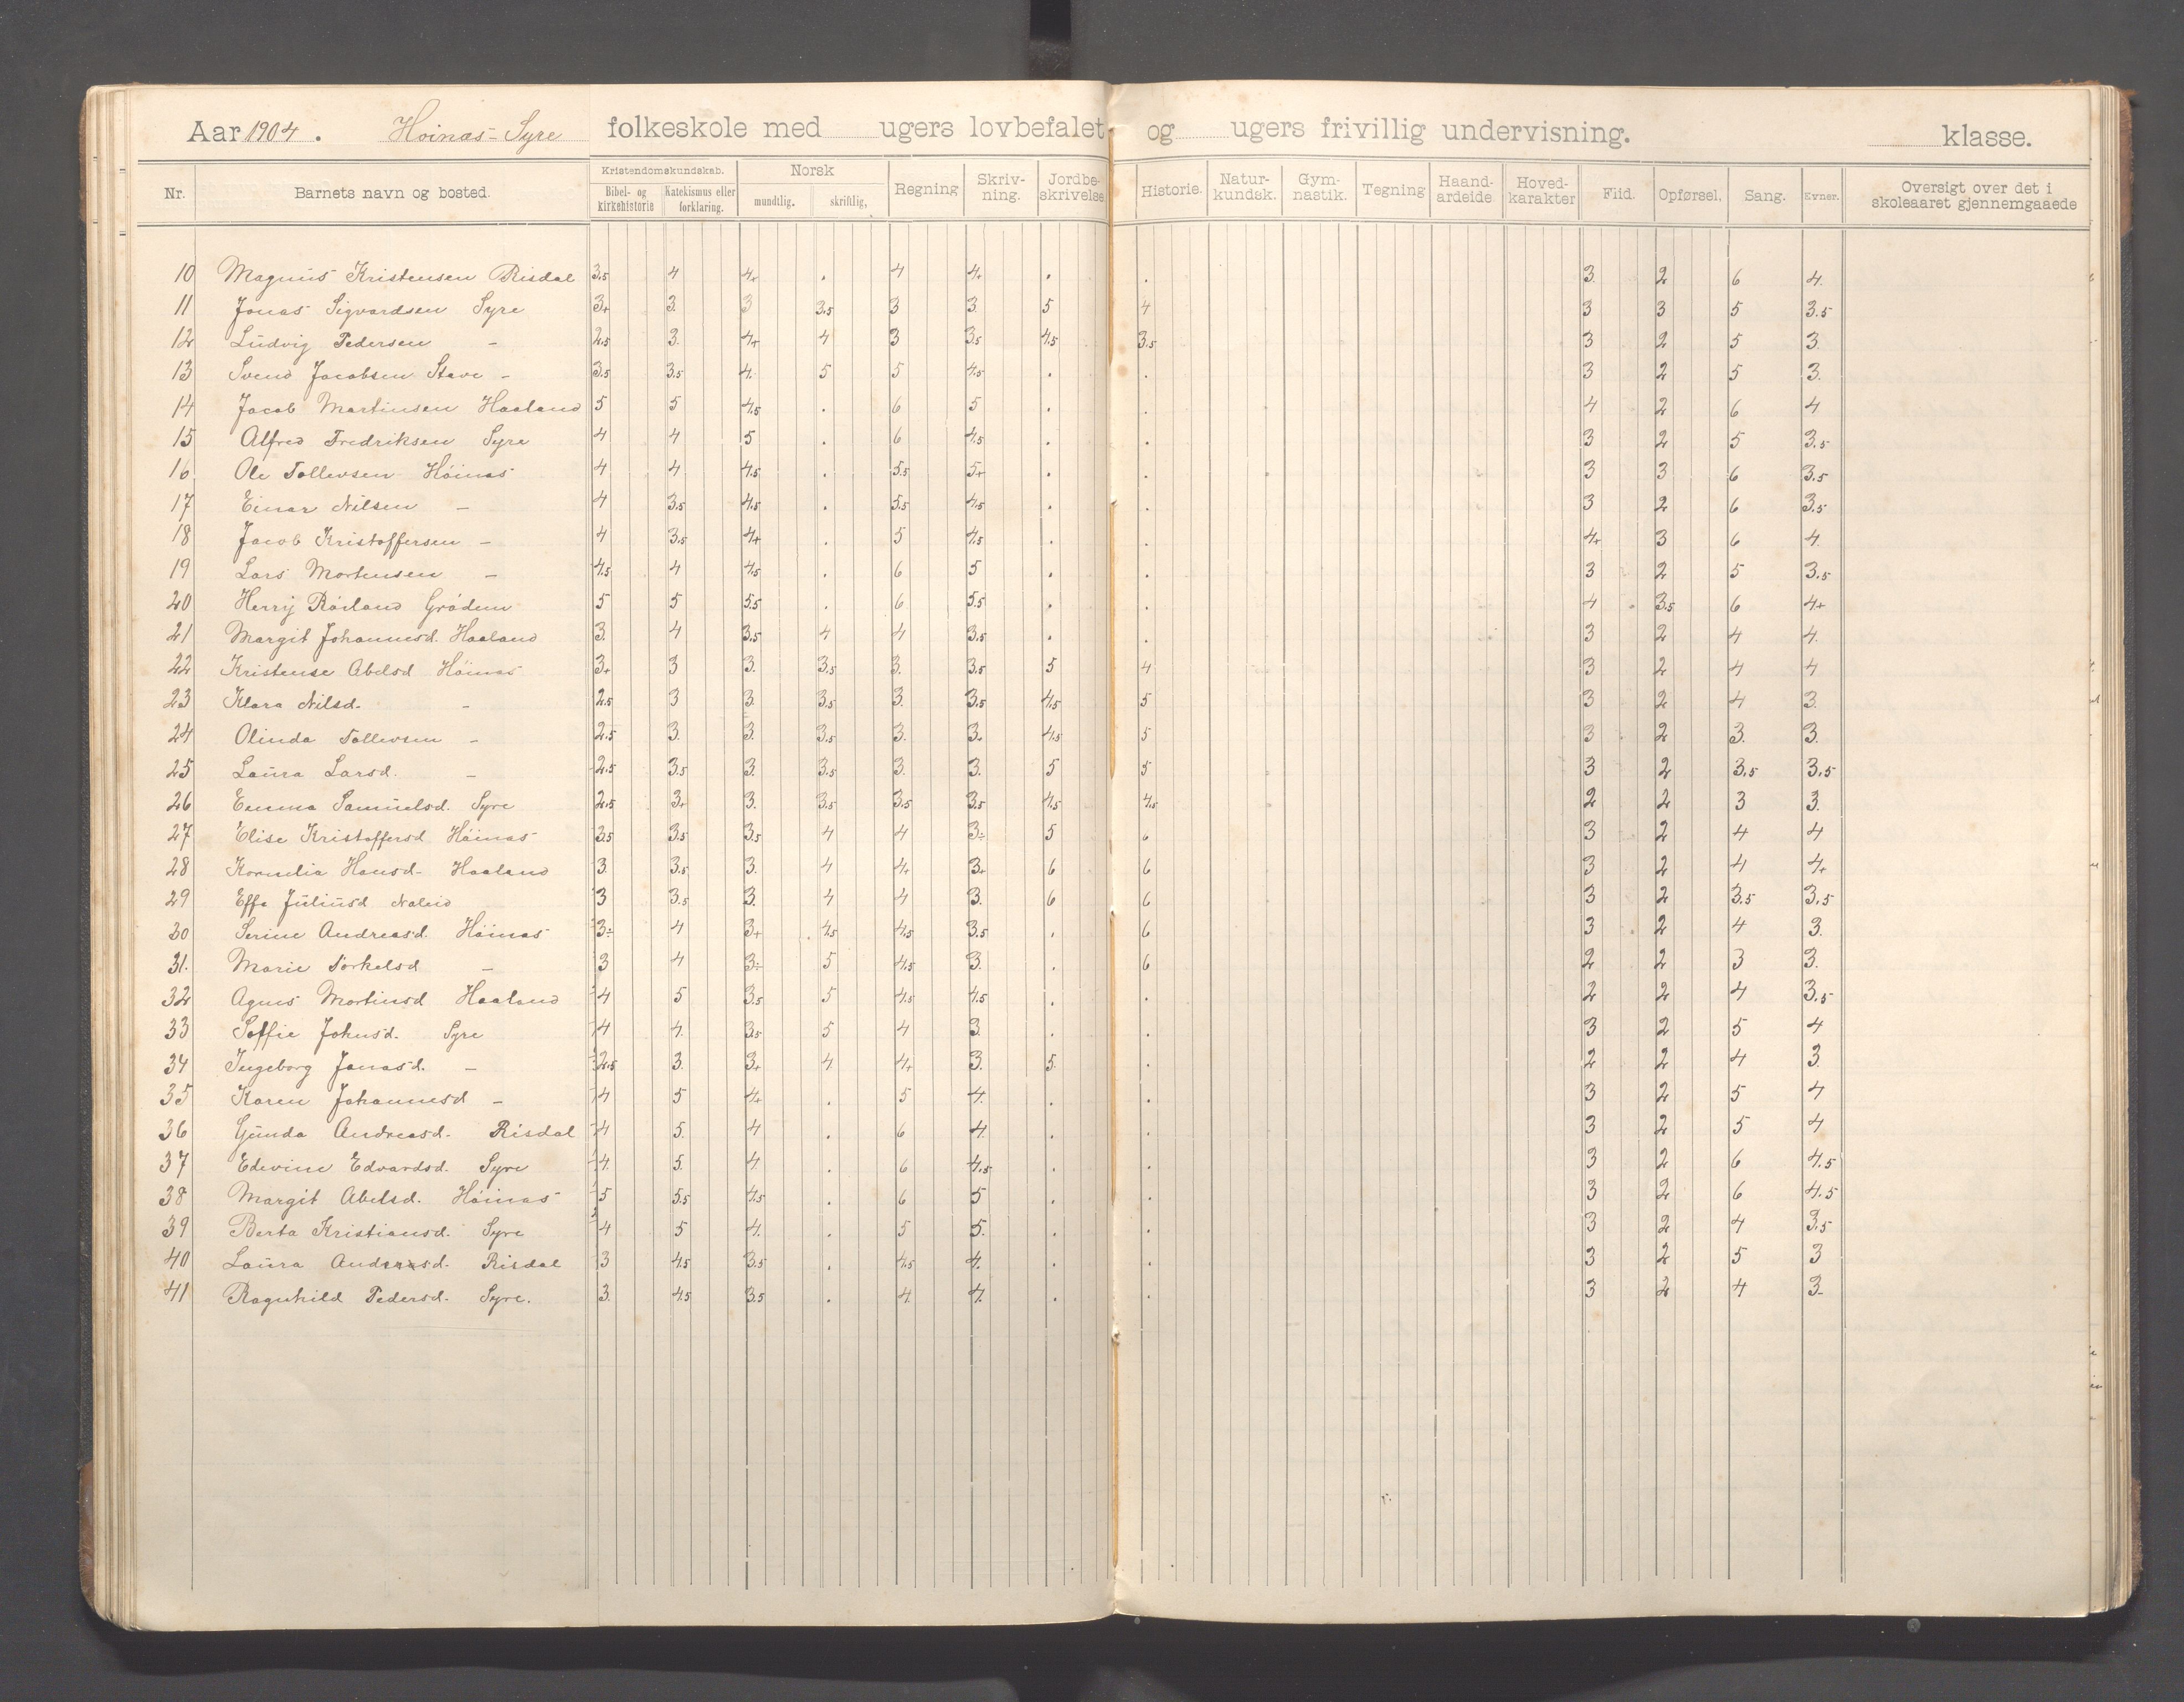 Aar 1904. Hoinæs-Syre folkeskole med ugers lovbefalet og ugers frivillig undervisning. klasse.
Nr. Barnets navn og bosted. Kristendomskundskab. Bibel- og kirkehistorie Katekismus eller forklaring. Norsk mundtlig. skriftlig, Regning Skriv-ning. Jordbe-skrivelse. Historie. Natur-kundsk. Gym-nastik. Tegning Haand-ardeide Hoved-karakter Flid. Opførsel. Sang. Evner. Oversigt over det i skoleaaret gjennemgaaede
10 Magnus Kristensen Risdal 3.5 4 4+ . 4 4+ . . 3. 2 6 4.
11 Jonas Sigvardsen Syre 3+ 3. 3 3.5 3 3. 5 4 3 3 5 3.5
12 Ludvig Pedersen - 2.5 3. 4+ 4 3 3.5 4.5 3.5 3 2 5 3.
13 Svend Jacobsen Stave - 3.5 3.5 4. 5 5 4.5 . . 3 2 5 3.
14 Jacob Martinsen Haaland 5 5 4.5 . 6 5 . . 4 2 6 4
15 Alfred Fredriksen Syre 4 4 5 . 6 4.5 . . 3 2 5 3.5
16 Ole Tollevsen Höinæs 4 4 4.5 . 5.5 5+ . . 3 3 6 3.5
17 Einar Nilsen - 4 3.5 4.5 . 5.5 4.5 . . 3 2 6 3.5
18 Jacob Kristoffersen - 4 3.5 4+ . 5 4.5 . . 4+ 3 6 4.
19 Lars Mortensen - 4.5 4 4.5 . 6 5 . . 3 2 5 3.5
20 Herrij Röiland Grödem 5 5 5.5 . 6 5.5 . . 4 3.5 6 4+
21 Margit Johannesd. Haaland 3. 4 3.5 4 4 3.5 . . 3 2 4 4.
22 Kristense Abelsd Höinæs 3+ 3 3. 3.5 3. 3.5 5 4 3 2 4 4
23 Klara Nilsd. - 2.5 3 3. 3.5 3. 3.5 4.5 5 3 2 4 3.
24 Olinda Tollevsen - 2.5 3. 3. 3.5 3. 3+ 4.5 5 3 2 3. 3.
25 Laura Larsd. - 2.5 3.5 3. 3.5 3. 3. 5 5 3 2 3.5 3.5
26 Emma Samuelsd. Syre 2.5 3+ 3. 3.5 3.5 3.5 4.5 4.5 2 2 3 3.
27 Elise Kristoffersd Höinæs 3.5 3.5 3.5 4 4 3÷ 5 6 3 2 4 4
28 Kornelia Hansd- Haaland 3. 3.5 3. 4 4+ 3+ 6 6 3 2 4 4+
29 Effa Juliusd 3 3.5 3. 4 4 3. 6 6 3 2 3.5 3.5
30 Serine Andreasd. Höinæs 3÷ 4 3+ 4.5 4.5 3.5 . 6 3 2 4 3.
31. Marie Torkelsd - 3 4 3÷ 5 4.5 3. . 6 2 2 3 3.
32 Agnes Martinsd Haaland 4 5 3.5 5 4.5 4.5 . . 2 2 4 3.5
33 Soffie Johnsd. Syre 4 4. 3.5 5 4 3. . . 3 2 5 4
34 Ingeborg Jonasd. - 2.5 3. 3+ 4 4+ 3. 5. . 2 2 4 3.
35 Karen Johannesd - 4 5 4+ . 5 4. . . 3 2 5 4
36 Gunda Andreasd. Risdal 4 5. 4 . 6 4. . . 3 2 5 4
37 Edevine Edvardsd. Syre 4. 5. 4. . 6 4.5 . . 3 2 6 4.5
38 Margit Abelsd. Höinæs 5 5.5 4.5 . 6 5 . . 3 2 6 4.5
39 Berta Kristiansd. Syre 4 5 4. . 5 5. . . 3 2 4 3.5
40 Laura Andreasd. Risdal 3 4.5 3.5 . 4.5 4. . . 3 2 5 3
41 Ragnhild Pedersd. Syre. 3. 4.5 3.5 . 4. 4. . . 3 2 4 3-